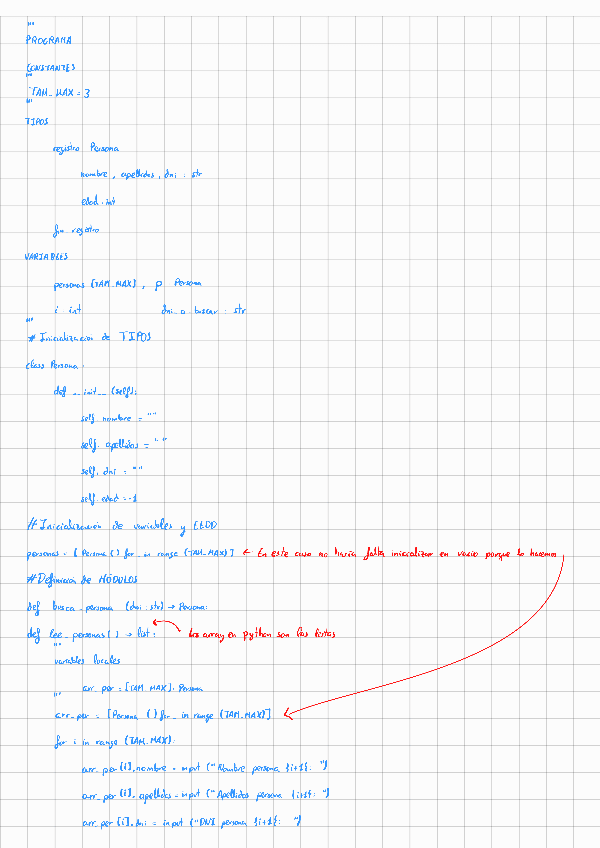 """
PROGRAMA
CONSTANTES
"""
TAM_MAX = 3
"""
TIPOS
registro Persona
nombre, apellidos, dni : str
edad : int
fin_registro
VARIABLES
personas [TAM_MAX], p Persona
i int dni_a_buscar : str
"""
# Inicialización de TIPOS
class Persona:
def __init__(self):
self.nombre = ""
self.apellidos = ""
self.dni = ""
self.edad = -1
# Inicialización de variables y EEDD
personas = [Persona() for _ in range (TAM_MAX)] ← En este caso no haría falta inicializar en vacío porque lo hacemos
# Definición de MÓDULOS
def busca_persona (dni: str) → Persona:
def lee_personas() → list: Los array en python son las listas
"""
variables locales
arr_per = [TAM_MAX]: Persona
"""
arr_per = [Persona () for _ in range (TAM_MAX)]
for i in range (TAM_MAX):
arr_per[i].nombre = input ("Nombre persona {i+1}: ")
arr_per[i].apellidos = input ("Apellidos persona {i+1}: ")
arr_per[i].dni = input ("DNI persona {i+1}: ")